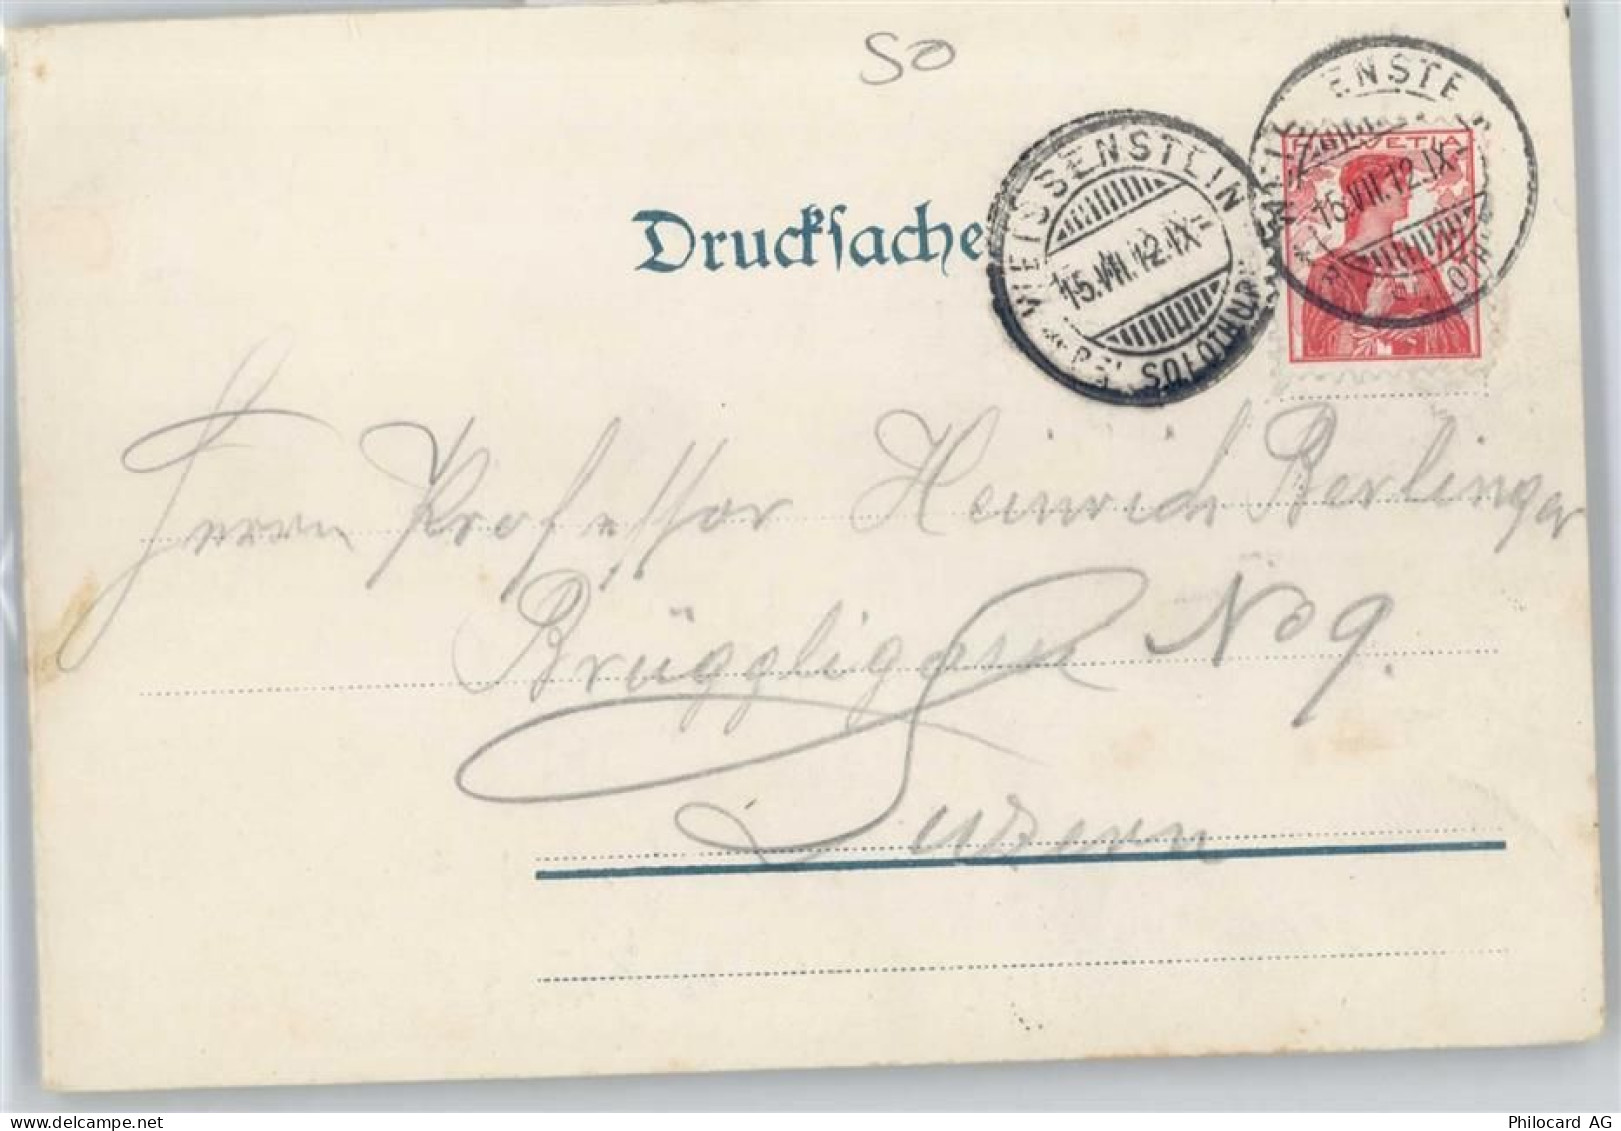 SO
Drucksache
WEISSENSTEIN
15.VII.12.IX-
BEI SOLOTHURN
HELVETIA
15.VII.12.IX-
Herrn Professor Heinrich Berlinger
Brüggligasse No 9.
Luzern
Philocard AG